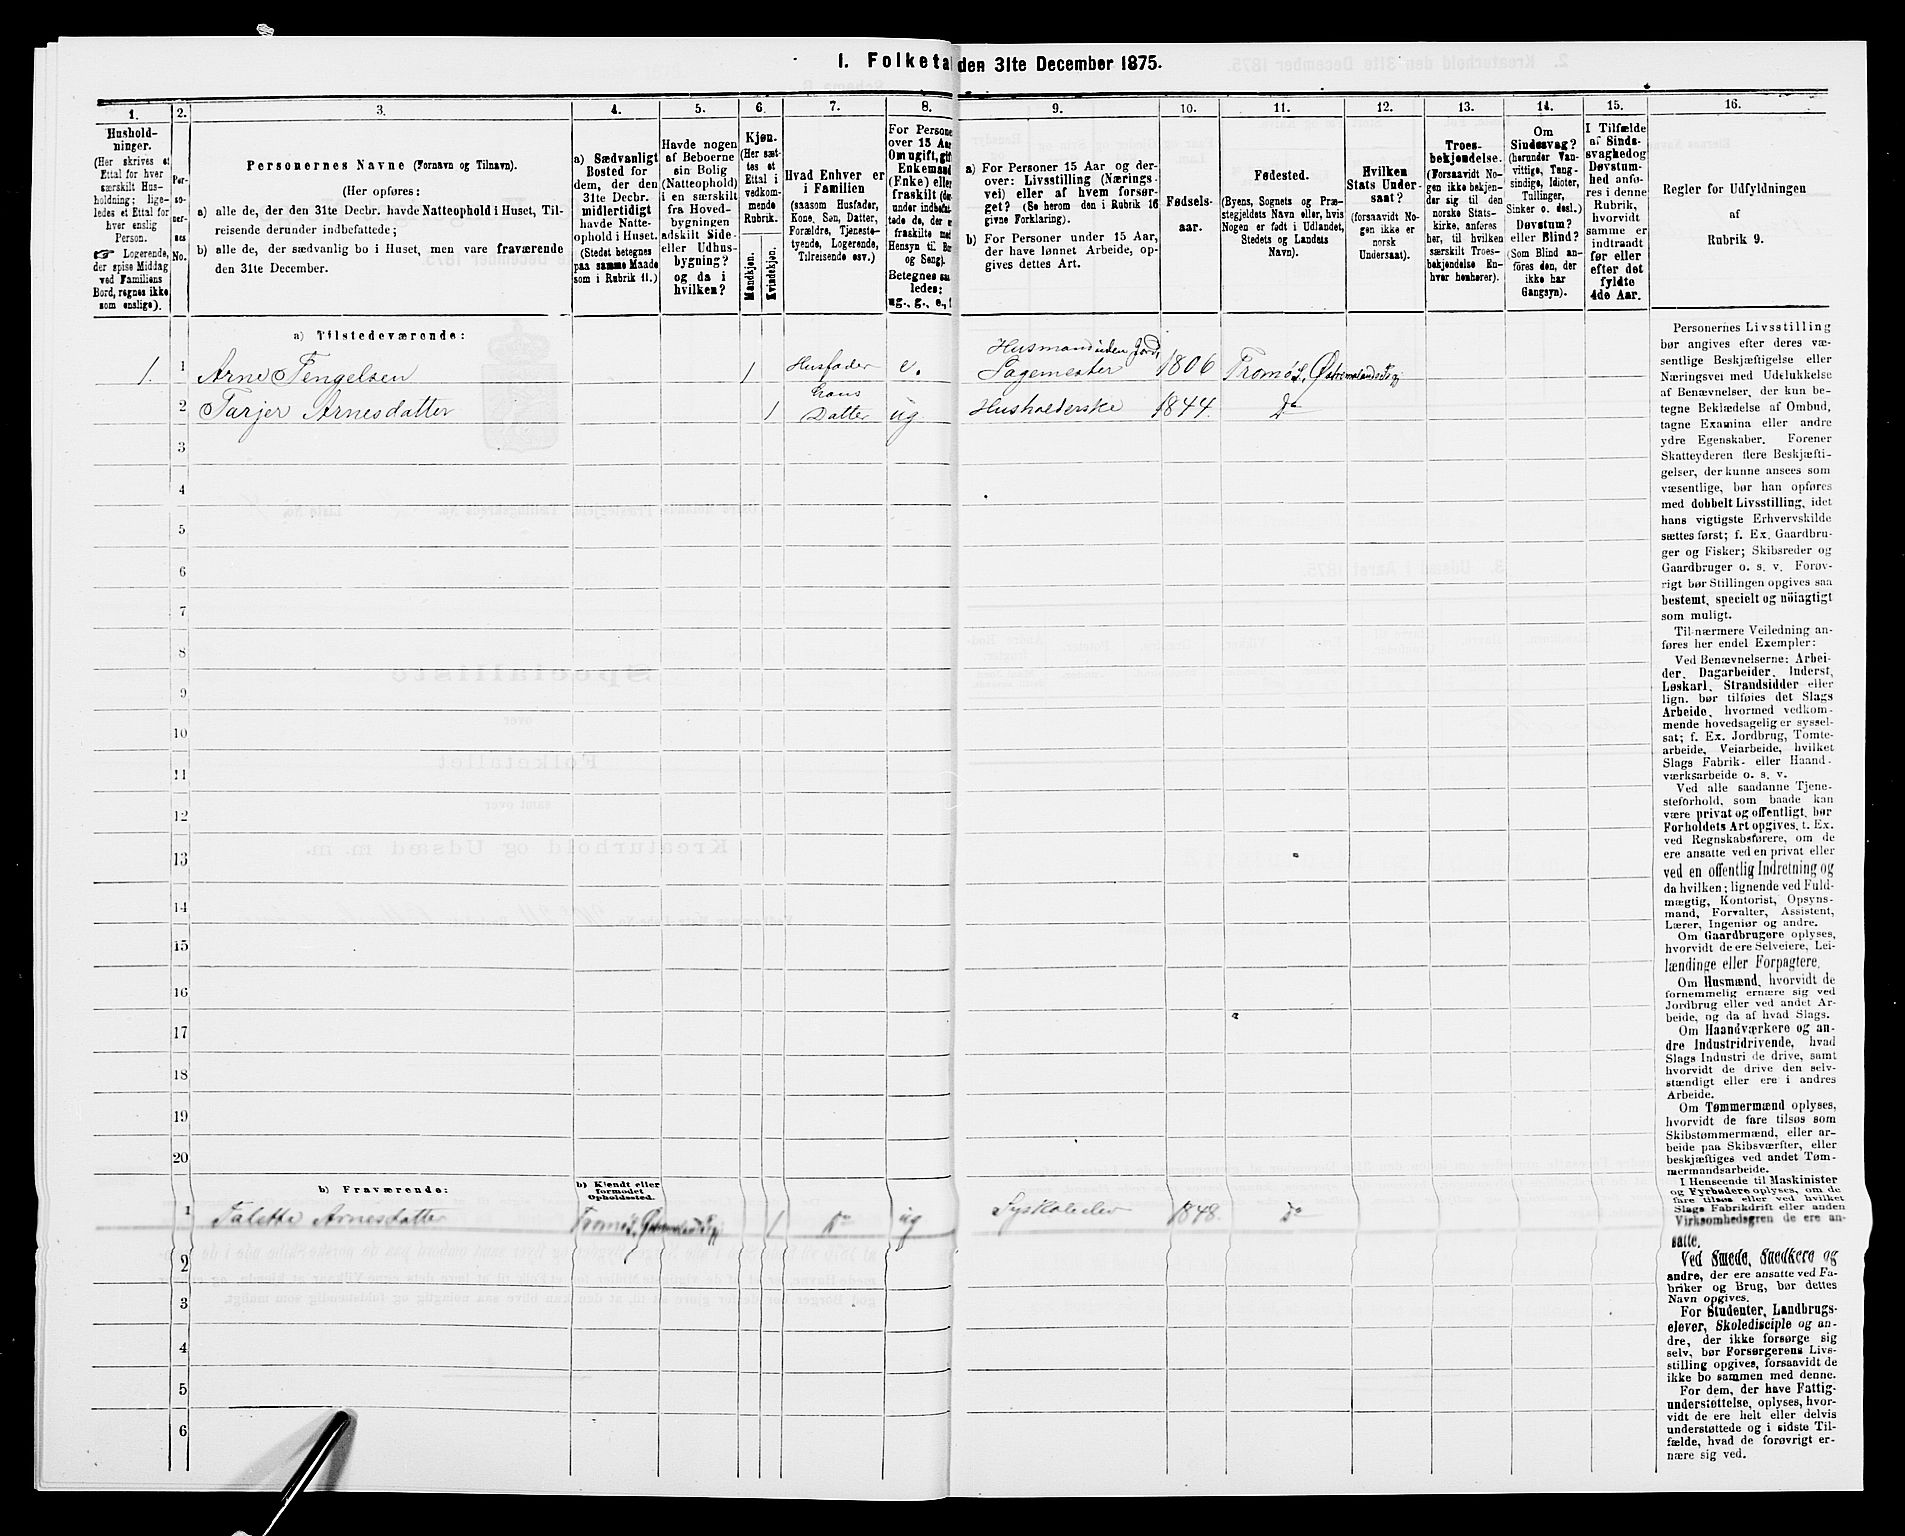 1. Folketal den 31te December 1875.
1. 2. 3. 4. 5. 6. 7. 8. 9. 10. 11. 12. 13. 14. 15. 16.
Hushold-
ninger.
(Her skrives et
Ettal for hver
særskilt Hus-
holdning; lige-
ledes et Ettal for
hver enslig
Person.
☞ Logerende,
der spise Middag
ved Familiens
Bord, regnes ikke
som enslige).
Per-
so-
ner-
nes
No.
Personernes Navne (Fornavn og Tilnavn).
(Her opføres:
a) alle de, der den 31te Decbr. havde Natteophold i Huset, Til-
reisende derunder indbefattede;
b) alle de, der sædvanlig bo i Huset, men vare fraværende
den 31te December.
a) Sædvanligt
Bosted for
dem, der den
31te Decbr.
midlertidigt
havde Natte-
ophold i Huset.
(Stedet betegnes
paa samme Maade
som i Rubrik 11.)
Havde nogen
af Beboerne
sin Bolig
(Natteophold)
i en særskilt
fra Hoved-
bygningen
adskilt Side-
eller Udhus-
bygning?
og da i
hvilken?
Kjøn.
(Her sæt-
tes et
Ettal i
vedkom-
mende
Rubrik.
Mandkjøn.
Kvindekjøn.
Hvad Enhver er
i Familien
(saasom Husfader,
Kone, Søn, Datter,
Forældre, Tjeneste-
tyende, Logerende,
Tilreisende osv.)
For Persone
over 15 Aar
Om ugift, gift
Enkemand
(Enke) eller
fraskilt (der-
under indbefat-
tede de, der e
fraskilte med
Hensyn til Bor
og Seng).
Betegnes saa
ledes:
ug., g., e.,
a) For Personer 15 Aar og der-
over: Livsstilling (Nærings-
vei) eller af hvem forsør-
get? (Se herom den i Rubrik 16
givne Forklaring).
b) For Personer under 15 Aar,
der have lønnet Arbeide, op-
gives dettes Art.
Fødsels-
aar.
Fødested.
(Byens, Sognets og Præ-
stegjeldets Navn eller, hvis
Nogen er født i Udlandet,
Stedets og Landets
Navn).
Hvilken
Stats Under-
saat?
(forsaavidt No-
gen ikke er
norsk
Undersaat).
Troes-
bekjendelse.
(Forsaavidt No-
gen ikke bekjen-
der sig til den
norske Stats-
kirke, anføres
her, til hvilken
særskilt Troes-
bekjendelse En-
hver henhører).
Om
Sindssvag?
(herunder Van-
vittige, Tung-
sindige, Idioter,
Tullinger,
Sinker o. desl.)
Døvstum?
eller Blind?
(Som Blind an-
føres den, der
ikke har
Gangsyn).
I Tilfælde
af Sinds-
svaghed og
Døvstum-
hed anfø-
res i denne
Rubrik,
hvorvidt
samme er
indtraadt
før eller
efter det
fyldte
4de Aar.
Regler for Udfyldningen
af
Rubrik 9.
a) Tilstedeværende:
Husmand uden Jord,
1. 1 Arne Tengelsen 1 Husfader e. Sagemester 1806 Tromø S. Østremolands Prgj
Hans
2 Tarjer Arnesdatter 1 Datter ug Husholderske 1844. Do
3
4
5
6
7
8
9
10
11
12
13
14
15
16
17
18
19
20
b) Fraværende:
b) Kjendt eller
formodet
Opholdssted.
1 Talette Arnesdatter Tromø S. Østremolands Prgj 1 Do ug 1848. Do
2
3
4
5
6
Personernes Livsstilling
bør angives efter deres væ-
sentlige Beskjæftigelse eller
Næringsvei med Udelukkelse
af Benævnelser, der kun be-
tegne Beklædelse af Ombud,
tagne Examina eller andre
ydre Egenskaber. Forener
Skatteyderen flere Beskjæfti-
gelser, der kunne ansees som
væsentlige, bør han opføres
med dobbelt Livsstilling, idet
hans vigtigste Erhvervskilde
sættes først; f. Ex. Gaardbru-
ger og Fisker; Skibsreder og
Gaardbruger o. s. v. Forøv-
rigt bør Stillingen opgives saa
bestemt, specielt og nöiagtigt
som muligt.
Til nærmere Veiledning an-
føres her endel Exempler:
Ved Benævnelserne: Arbei-
der, Dagarbeider, Inderst,
Løskarl, Strandsidder eller
lign. bør tilføies det Slags
Arbeide, hvormed vedkom-
mende hovedsagelig er syssel-
sat; f. Ex. Jordbrug, Tomte-
arbeide, Veiarbeide, hvilket
Slags Fabrik- eller Haand-
værksarbeide o. s. v.
Ved alle saadanne Tjene-
steforhold, som baade kan
være privat og offentligt, bør
Forholdets Art opgives, t. Ex.
ved Regnskabsførere, om de
ere ansatte ved en privat eller
ved en offentlig Indretning og
da hvilken; lignende ved Fuld-
mægtig, Kontorist, Opsyns-
mand, Forvalter, Assistent,
Lærer, Ingeniør og andre.
Om Gaardbrugere oplyses,
hvorvidt de ere Selveiere, Lei-
lændinge eller Forpagtere.
Om Husmænd, hvorvidt de
fornemmelig ernære sig ved
Jordbrug eller ved andet Ar-
beide, og da af hvad Slags.
Om Haandværkere og an-
dre Industridrivende, hvad
Slags Industri de drive, samt
hvorvidt de drive den selv-
stændigt eller ere i andres
Arbeide.
Om Tømmermænd oplyses,
hvorvidt de fare tilsøs som
Skibstømmermænd, eller ar-
beide paa Skibsværfter, eller
beskjæftiges ved andet Tøm-
mermandsarbeide.
I Henseende til Maskinister
og Fyrbødere oplyses, om de
fare tilsøs eller ved hvilket
Slags Fabrikdrift eller anden
Virksomhedsgren de ere an-
satte.
Ved Smede, Snedkere og
andre, der ere ansatte ved Fa-
briker og Brug, bør dettes
Navn opgives.
For Studenter, Landbrugs-
elever, Skoledisciple og an-
dre, der ikke forsørge sig
selv, bør Forsørgerens Livs-
stilling opgives, forsaavidt de
ikke bo sammen med denne.
For dem, der have Fattig-
understøttelse, oplyses, hvor-
vidt de ere helt eller delvis
understøttede og i sidste Til-
fælde, hvad de forøvrigt er-
nære sig ved.